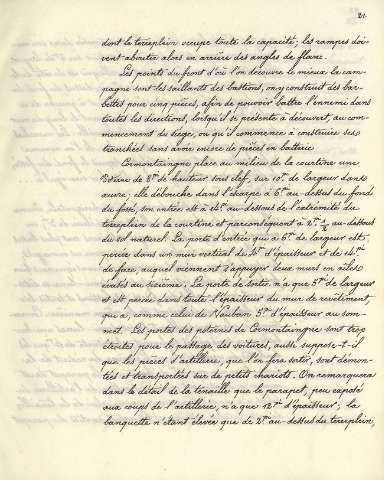 21.
dont le terreplein occupe toute la capacité; les rampes doi-
vent aboutir alors en arrière des angles de flanc.
Les points du front d'où l'on découvre le mieux la cam-
pagne sont les saillants des bastions, on y construit des bar-
bettes pour cinq pièces, afin de pouvoir battre l'ennemi dans
toutes les directions, lorsqu'il se présente à découvert, au com-
mencement du siège, ou qu'il commence à construire ses
tranchées sans avoir encore de pièces en batterie
Cormontaingne place au milieu de la courtine une
poterne de 8ds de hauteur sous clef, sur 10ds de largeur dans
œuvre: elle débouche dans l'écharpe à 6ds au-dessus du fond
du fossé, son entrée est à 14ds au-dessous de l'extrémité du
terreplein de la courtine et par conséquent à 2ds 1/2 au-dessous
du sol naturel. La porte d'entrée qui a 6ds de largeur est
percée dans un mur vertical de d'épaisseur et de 14ds
de face, auquel viennent s'appuyer deux murs en ailes
La porte de sortie n'a que 5ds de largeur
et est percée dans toute l'épaisseur du mur de revêtement,
qui a, comme celui de Vauban 5ds d'épaisseur au som-
met. Les portes des poternes de Cormontaingne sont trop
étroites pour le passage des voitures, aussi suppose-t-il
que les pièces d'artillerie, que l'on fera sortir, sont démon-
tées et transportées sur de petits chariots. On remarquera
dans le détail de la tenaille que le parapet, peu exposé
aux coups de l'artillerie, n'a que 12ds d'épaisseur; la
banquette n'étant élevée que de 2ds au-dessus du terreplein,